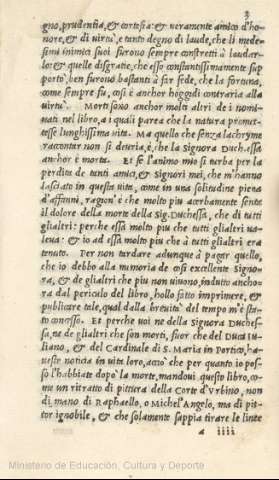 3
gno, prudentia, & cortesia: & veramente amico d'ho-
nore, & di virtù, e tanto degno di laude, che li mede-
simi inimici suoi furono sempre constretti à laudar-
lo: & quelle disgratie, che esso constantissimamente sup
portò, ben furono bastanti à far fede, che la fortuna,
come sempre fu, cosi è anchor hoggidì contraria alla
virtù. Morti sono anchor molti altri de i nomi-
nati nel libro, a i quali parea che la natura promet-
tesse lunghissima vita. Ma quello che senza lachryme
raccontar non si devria, è, che la Signora Duchessa
anchor è morta. Et se l'animo mio si turba per la
perdita de tanti amici, & Signori miei, che m'hanno
lasciato in questa vita, come in una solitudine piena
d'affanni, ragion'è che molto piu acerbamente senta
il dolore della morte della Sig. Duchessa, che di tutti
gli altri: perche essa molto piu che tutti gli altri va-
leva: & io ad essa molto piu che à tutti gli altri era
tenuto. Per non tardare adunque à pagar quello,
che io debbo alla memoria de cosi excellente Signo-
ra, & de gli altri che piu non vivono, indutto ancho-
ra dal periculo del libro, hollo fatto imprimere, &
publicare tale, qual dalla brevità del tempo m'è sta-
to concesso. Et perche voi ne della Signora Duches-
sa, ne de gli altri che son morti, fuor che del Duca Iu-
liano, & del Cardinale di S. Maria in Portico, ha-
veste noticia in vita loro, acciò che per quanto io pos-
so l'habbiate dapo la morte, mandovi questo libro, co-
me un ritratto di pittura della Corte d'Vrbino, non
di mano di Raphaello, o Michel'Angelo, ma di pit-
tor ignobile, & che solamente sappia tirare le linee
a iiii
Ministerio de Educación, Cultura y Deporte